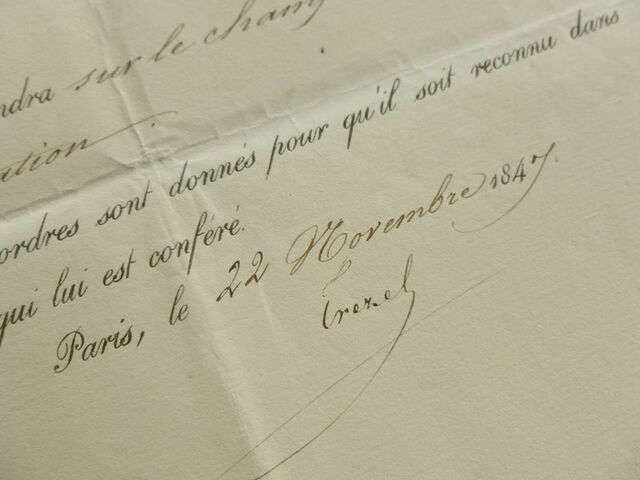 ndra sur le champ
ation
ordres sont donnés pour qu'il soit reconnu dans
qui lui est conféré.
Paris, le 22 Novembre 1847.
Trezel